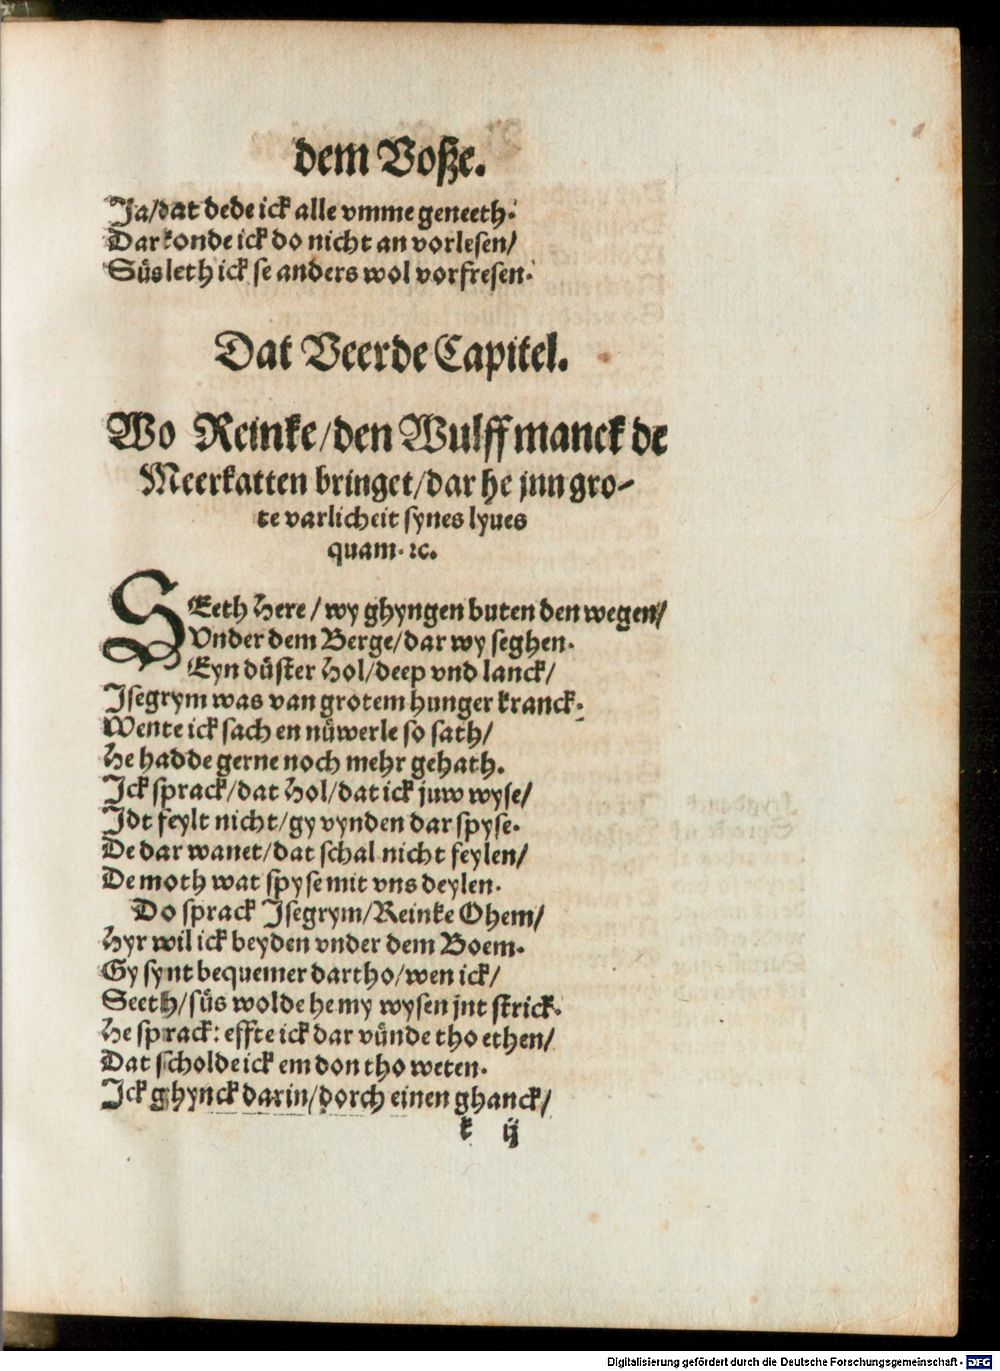 dem Voſʒe.
Ja/dat dede ick alle vmme geneeth.
Dar konde ick do nicht an vorlesen/
Süs leth ick se anders wol vorfresen.
Dat Veerde Capitel.
Wo Reinke/den Wulff manck de
Meerkatten bringet/dar he jnn gro-
te varlicheit synes lyues
quam. ꝛc.
SEeth Here/wy ghyngen buten den wegen/
Vnder dem Berge/dar wy seghen.
Eyn düster Hol/deep vnd lanck/
Jsegrym was van grotem hunger kranck.
Wente ick sach en nüwerle so sath/
He hadde gerne noch mehr gehath.
Jck sprack/dat Hol/dat ick juw wyse/
Jdt feylt nicht/gy vynden dar spyse.
De dar wanet/dat schal nicht feylen/
De moth wat spyse mit vns deylen.
Do sprack Jsegrym/Reinke Ohem/
Hyr wil ick beyden vnder dem Boem.
Gy synt bequemer dartho/wen ick/
Seeth/süs wolde he my wysen jnt strick.
He sprack: effte ick dar vünde tho ethen/
Dat scholde ick em don tho weten.
Jck ghynck darin/dorch einen ghanck/
k ij
Digitalisierung gefördert durch die Deutsche Forschungsgemeinschaft - DFG